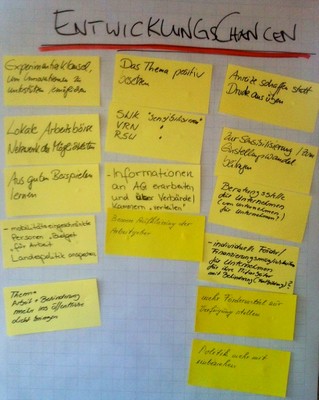 ENTWICKLUNGSCHANCEN
Experimentierklausel,
um Innovationen zu
unterstützen / ermöglichen
Lokale Arbeitsbörse
Netzwerk der Möglichkeiten
Aus guten Beispielen
lernen
- mobilitätseingeschränkte
Personen
für Arbeit
Landespolitik ansprechen
Thema
Arbeit + Behinderung
mehr ins öffentliche
Licht bringen
Das Thema positiv
besetzen
SWK "Sensibilisieren"
VRN "
RSW "
- Informationen
an AG erarbeiten
und über Verbände/
Kammern "verteilen"
Bessere Aufklärung der
Arbeitgeber
Anreize schaffen statt
Druck ausüben
Zur Sensibilisierung / zum
beitragen
Beratungsstelle
für Unternehmen
(von Unternehmen
für Unternehmen?)
- individuelle Förder/
Finanzierungsmöglichkeiten
für Unternehmen
für den Mitarbeiter
mit Behinderung
mehr Fördermittel zur
Verfügung stellen
Politik mehr mit
einbeziehen